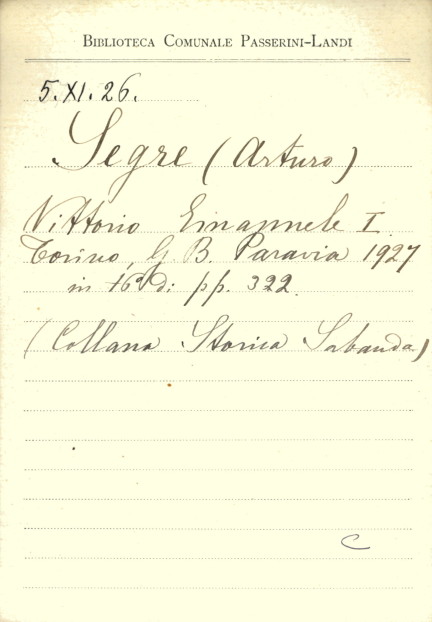 BIBLIOTECA COMUNALE PASSERINI-LANDI
5.XI.26.
Segre (Arturo)
Vittorio Emanuele I.
Torino, G. B. Paravia 1927
in 16° di pp. 322.
(Collana Storica Sabauda)
C